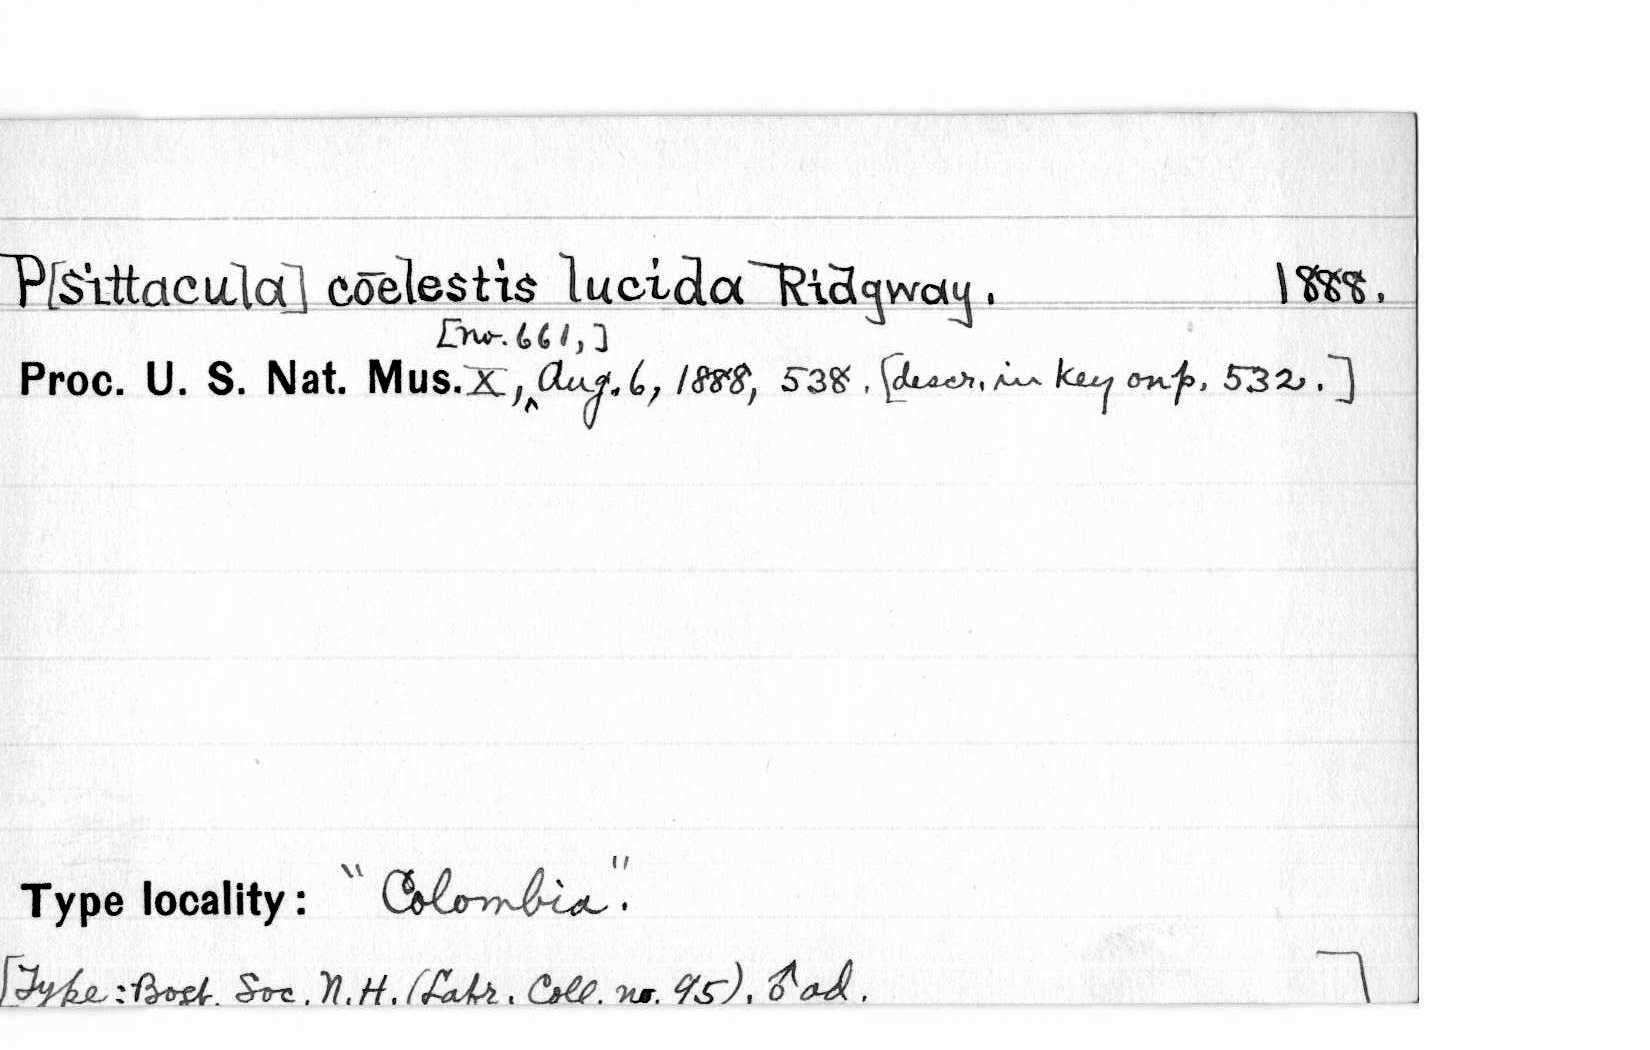 P[sittacula] cōelestis lucida Ridgway. 1888.
[no. 661,]
Proc. U. S. Nat. Mus. X, ‸ Aug. 6, 1888, 538. [descr. in key on p. 532.]
Type locality: "Colombia".
[Type: Bost. Soc. N.H. (Lafr. Coll. no. 95). ♂ ad. ]